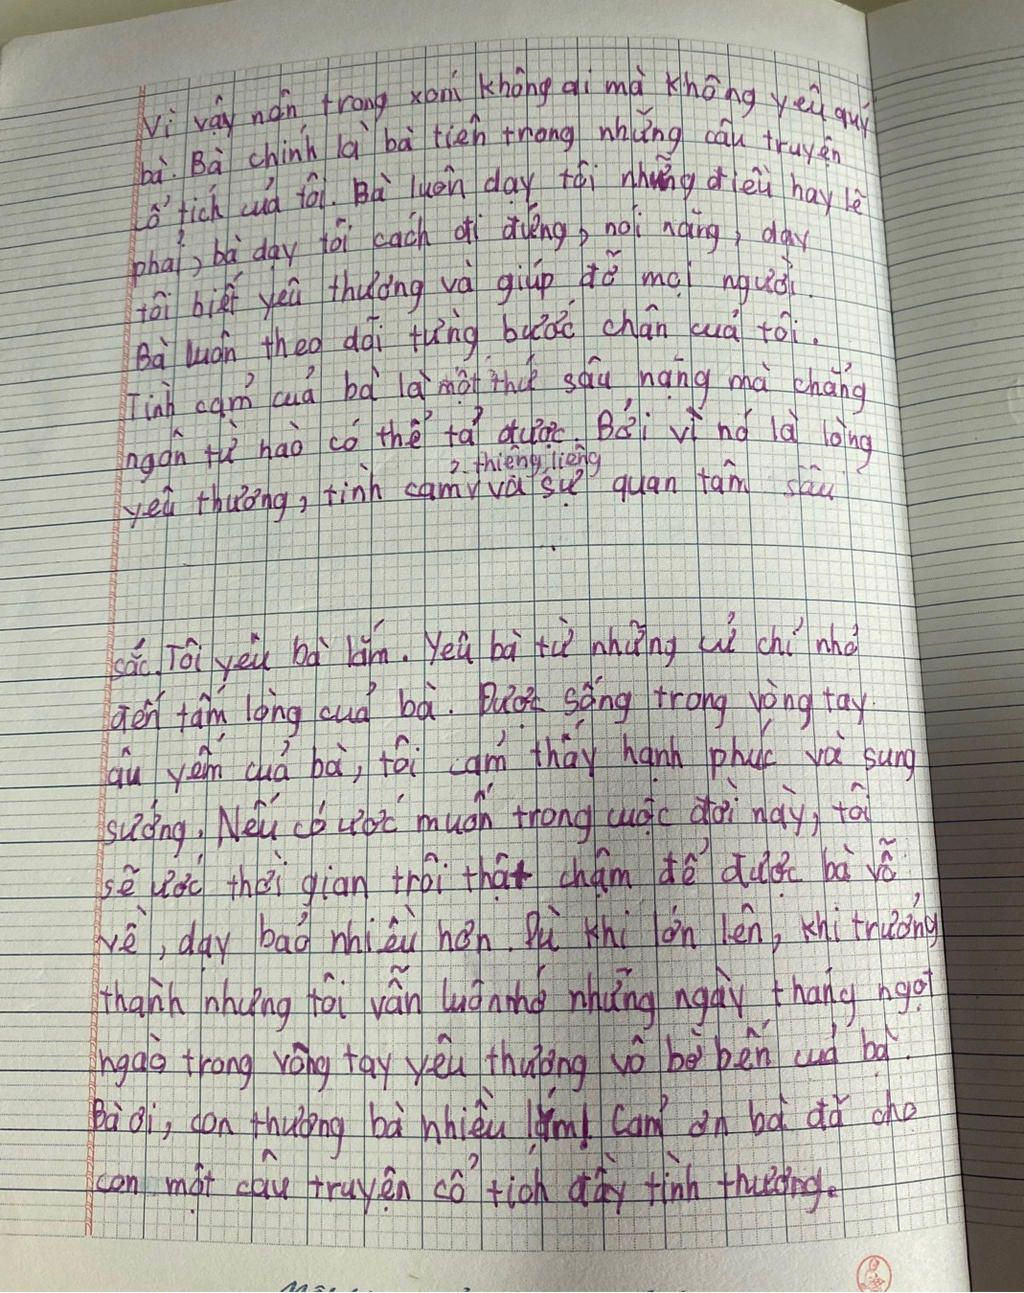 Vì vậy nên trong xóm không ai mà không yêu quý
bà. Bà chính là bà tiên trong những câu truyện
cổ tích của tôi. Bà luôn dạy tôi những điều hay lẽ
phải, bà dạy tôi cách đi đứng, nói năng, dạy
tôi biết yêu thương và giúp đỡ mọi người.
Bà luôn theo dõi từng bước chân của tôi.
Tình cảm của bà là một thứ sâu nặng mà chẳng
ngôn từ nào có thể tả được. Bởi vì nó là lòng
thiêng liêng
yêu thương, tình cảm và sự quan tâm sâu
sắc. Tôi yêu bà lắm. Yêu bà từ những cử chỉ nhỏ
đến tấm lòng của bà. Được sống trong vòng tay
âu yếm của bà, tôi cảm thấy hạnh phúc và sung
sướng. Nếu có ước muốn trong cuộc đời này, tôi
sẽ ước thời gian trôi thật chậm để được bà vỗ
về, dạy bảo nhiều hơn. Dù khi lớn lên, khi trưởng
thành nhưng tôi vẫn luôn nhớ những ngày tháng ngọt
ngào trong vòng tay yêu thương vô bờ bến của bà.
Bà ơi, con thương bà nhiều lắm! Cảm ơn bà đã cho
con một câu truyện cổ tích đầy tình thương.